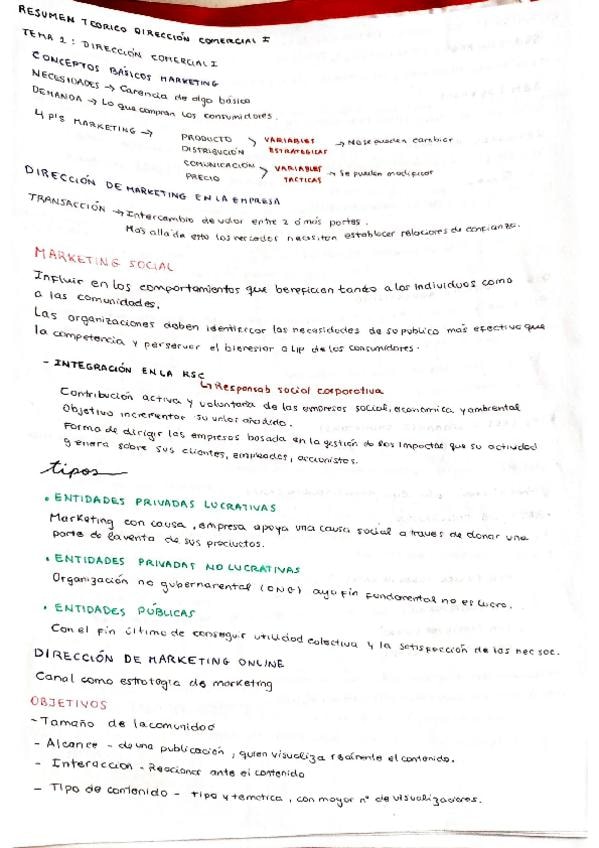 RESUMEN TEORICO DIRECCIÓN COMERCIAL I
TEMA 1: DIRECCIÓN COMERCIAL I
CONCEPTOS BÁSICOS MARKETING
NECESIDADES → Carencia de algo básico
DEMANDA → Lo que compran los consumidores.
4 P'S MARKETING →
PRODUCTO
DISTRIBUCIÓN
VARIABLES ESTRATEGICAS → No se pueden cambiar
COMUNICACIÓN
PRECIO
VARIABLES TACTICAS → Se pueden modificar
DIRECCIÓN DE MARKETING EN LA EMPRESA
TRANSACCIÓN → Intercambio de valor entre 2 ó más partes.
Más allá de esto los mercados necesitan establecer relaciones de confianza.
MARKETING SOCIAL
Influir en los comportamientos que benefician tanto a los individuos como
a las comunidades.
Las organizaciones deben identificar las necesidades de su publico mas efectivo que
la competencia y perservar el bienestar a l/p de los consumidores.
- INTEGRACIÓN EN LA RSC
↳ Responsab social corporativa
Contribución activa y voluntaria de las empresas social, economica y ambiental
Objetivo incrementar su valor añadido.
Forma de dirigir las empresas basada en la gestión de los impactos que su actividad
genera sobre sus clientes, empleados, accionistas.
tipos
• ENTIDADES PRIVADAS LUCRATIVAS
Marketing con causa, empresa apoya una causa social a traves de donar una
parte de la venta de sus productos.
• ENTIDADES PRIVADAS NO LUCRATIVAS
Organización no gubernamental (ONG) cuyo fin fundamental no es lucro.
• ENTIDADES PÚBLICAS
Con el fin último de conseguir utilidad colectiva y la satisfacción de las nec soc.
DIRECCIÓN DE MARKETING ONLINE
Canal como estrategia de marketing
OBJETIVOS
- Tamaño de la comunidad
- Alcance - de una publicación, quien visualiza realmente el contenido.
- Interaccion - Reacionar ante el contenido
- Tipo de contenido - tipo y temática, con mayor nº de visualizaciones.